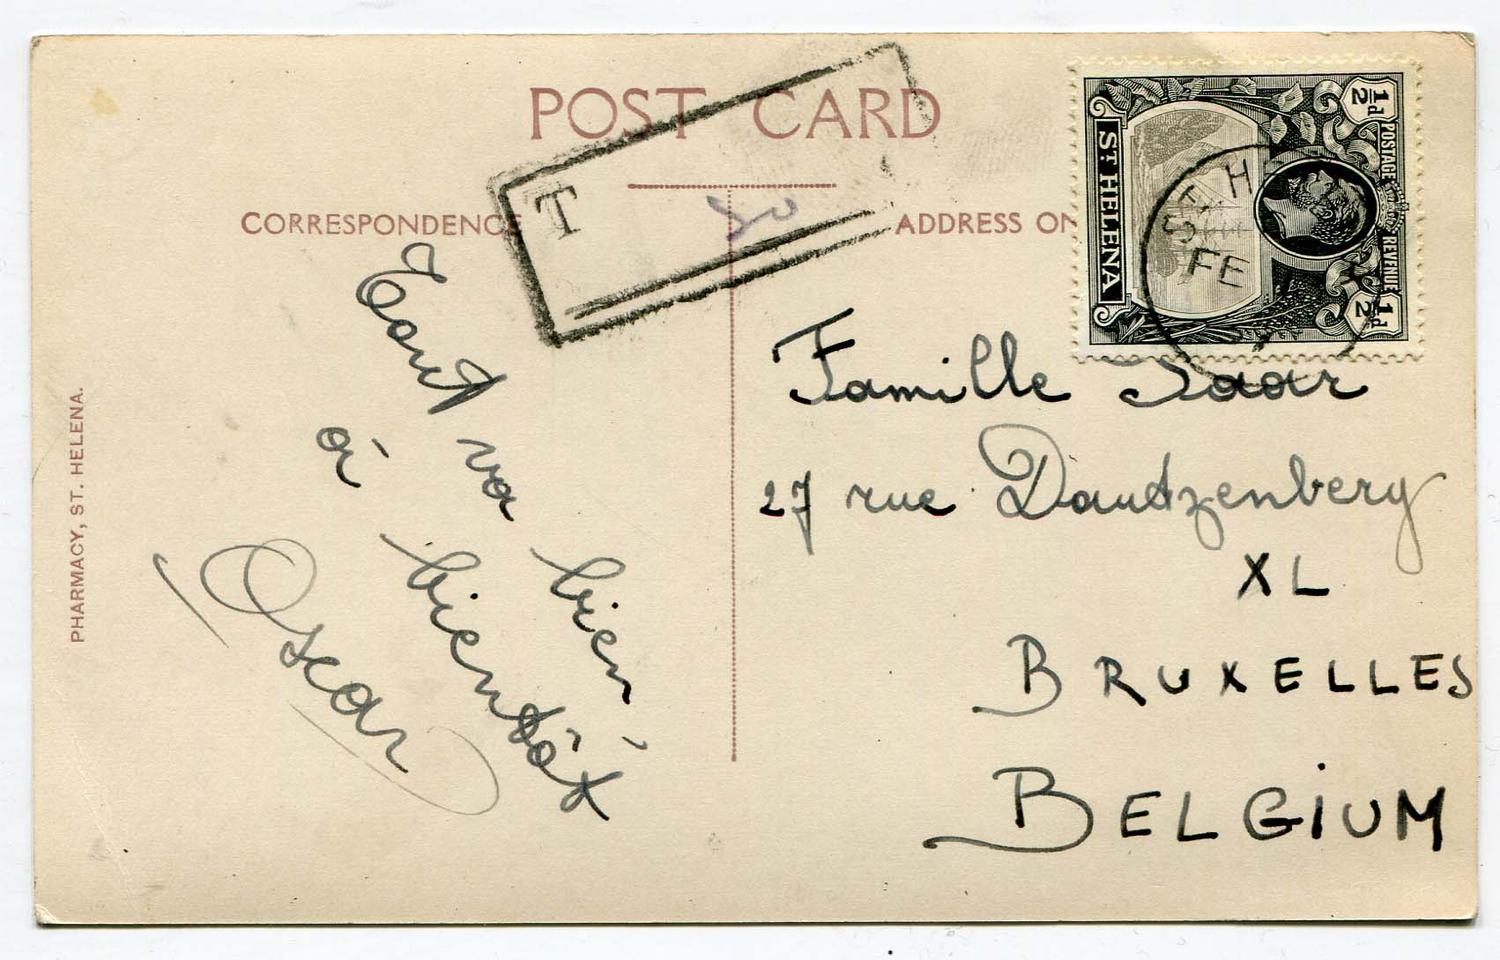 POST CARD
CORRESPONDENCE
ADDRESS ON
T
50
ST HELENA
POSTAGE & REVENUE
½d
½d
ST. H
FE
PHARMACY, ST. HELENA.
Tout va bien
à bientôt
Oscar
Famille Saar
27 rue Dautzenberg
XL
BRUXELLES
BELGIUM